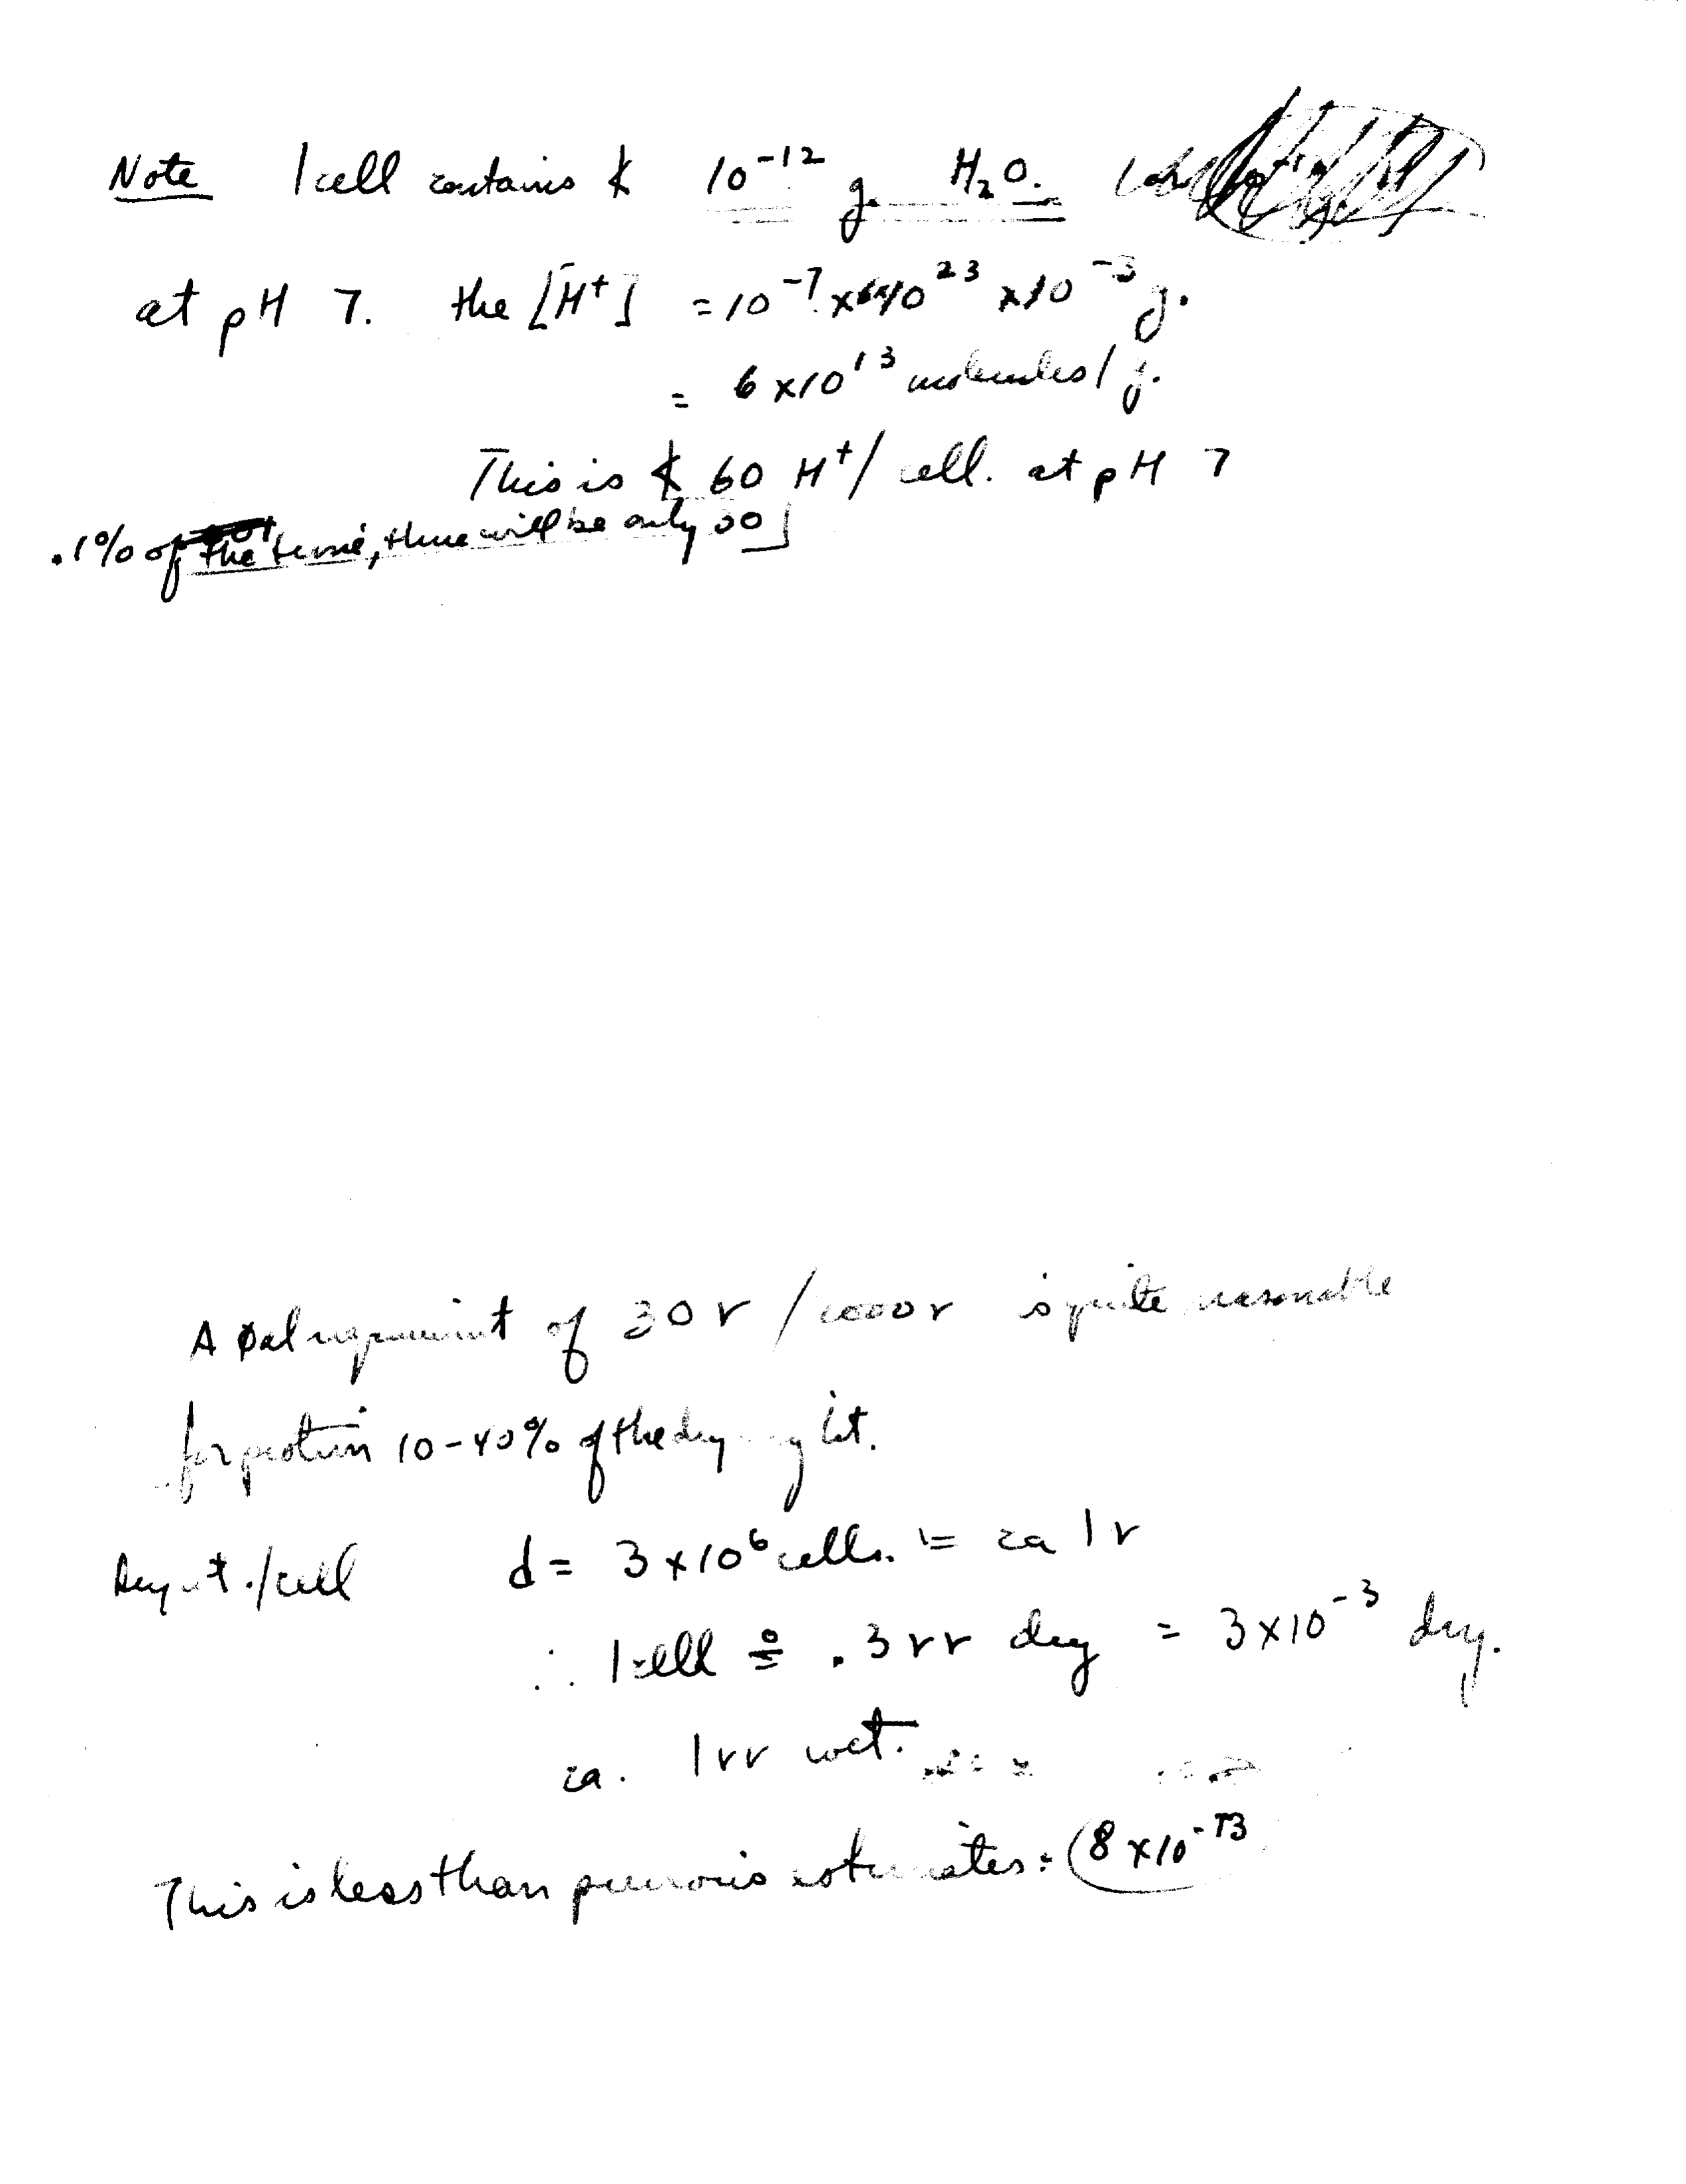 Note 1 cell contains ≮ 10⁻¹² g. H₂O.
at pH 7. the [H⁺] = 10⁻⁷ x 6x10²³ x 10⁻³ g.
= 6 x 10¹³ molecules / g.
This is ≮ 60 H⁺/ cell. at pH 7
.1% of the time, there will be only 30]
A øal requirement of 30 γ / 1000 γ is quite reasonable
for protein 10-40% of the dry
Dry wt./cell d = 3 x 10⁶ cells. = ca 1 γ
∴ 1 cell ≗ .3 γγ dry = 3 x 10⁻³ dry.
ca. 1 γγ wet.
This is less than previous estimates: (8 x 10⁻¹³